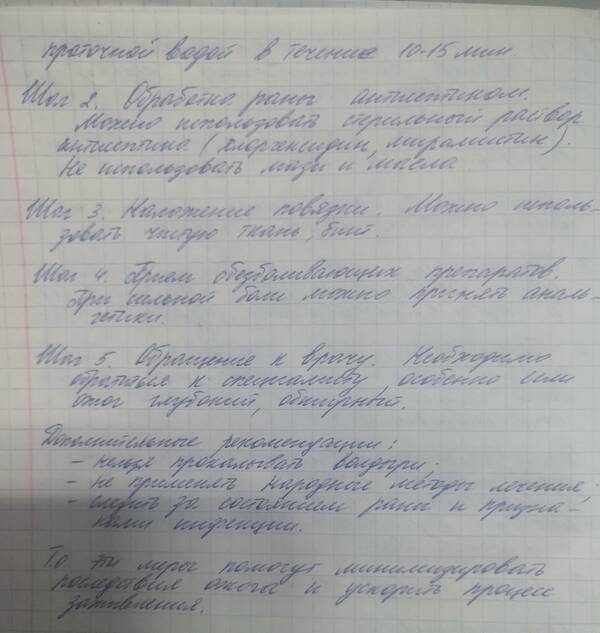 проточной водой в течение 10-15 мин
Шаг 2. Обработка раны антисептиком.
Можно использовать стерильный раствор
антисептика (хлоргексидин, мирамистин).
Не использовать мази и масла
Шаг 3. Наложение повязки. Можно исполь-
зовать чистую ткань, бинт.
Шаг 4. Прием обезболивающих препаратов.
При сильной боли можно принять аналь-
гетики.
Шаг 5. Обращение к врачу. Необходимо
обратиться к специалисту, особенно если
ожог глубокий, обширный.
Дополнительные рекомендации:
- нельзя прокалывать волдыри;
- не применять народные методы лечения;
- следить за состоянием раны и призна-
ками инфекции.
Т.о. эти меры помогут минимизировать
последствия ожога и ускорить процесс
заживления.